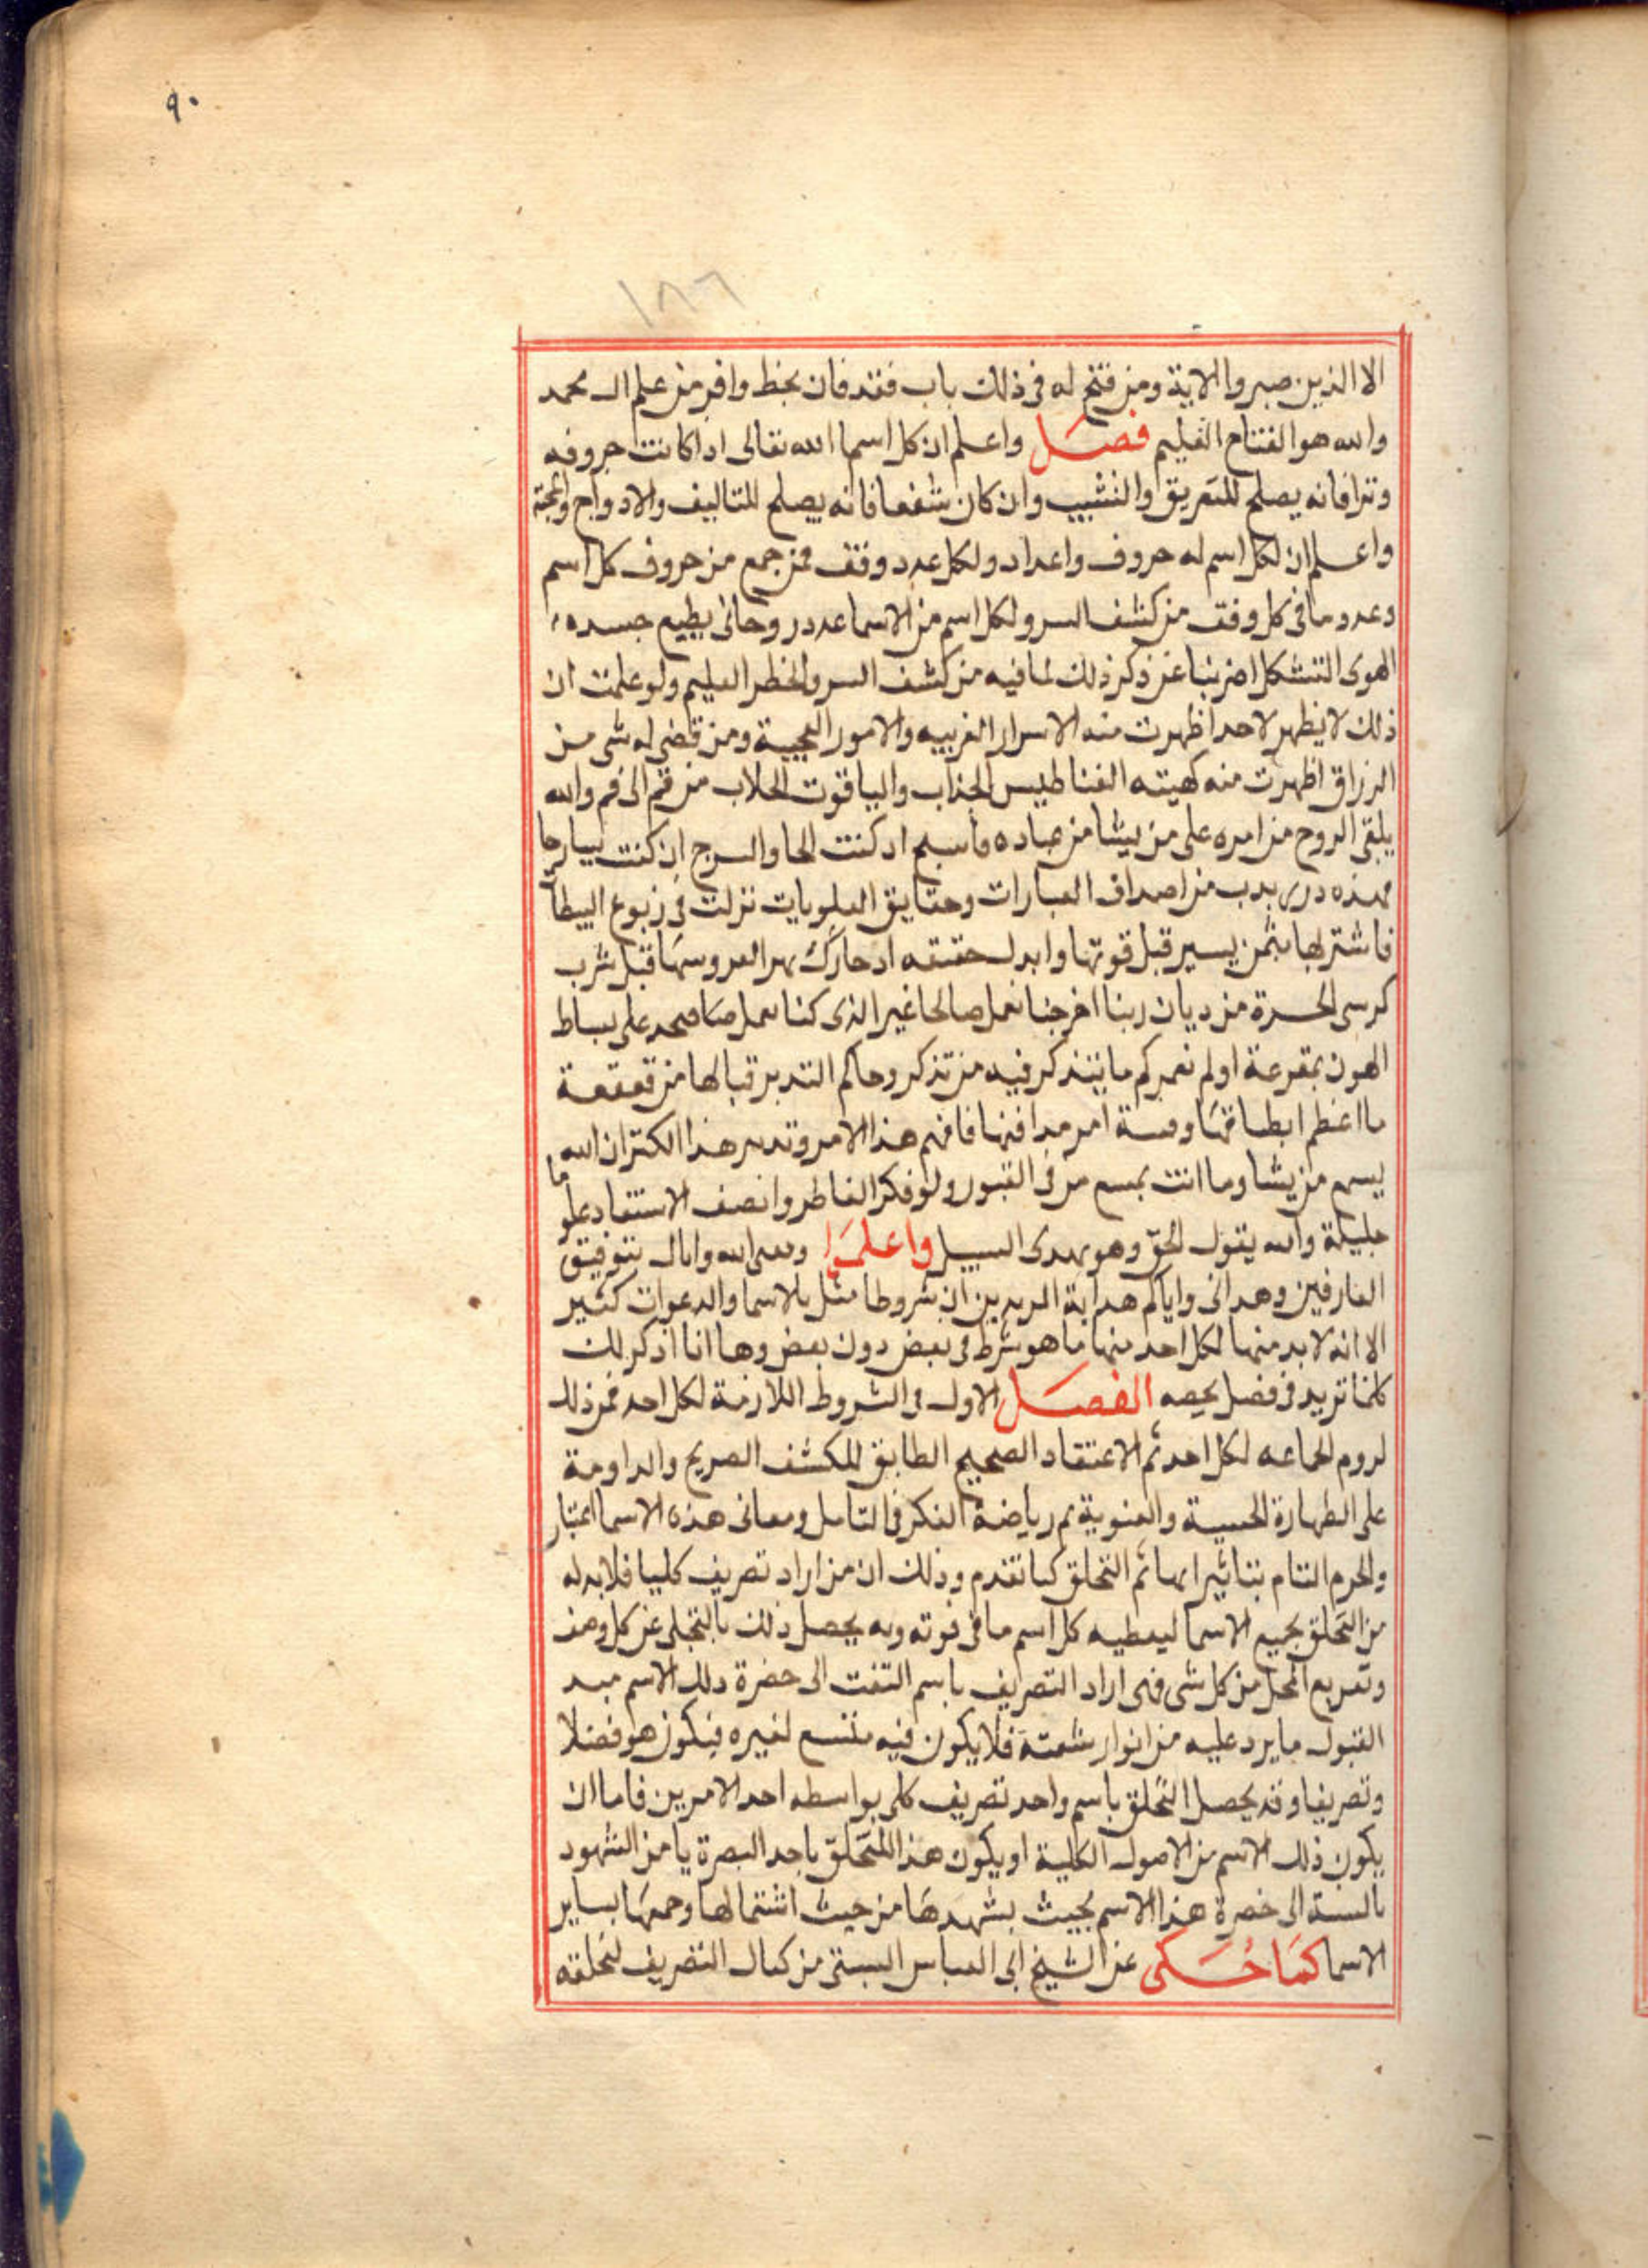 ٩٠
١٨٦
الا الذين صبروا الاية ومن فتح له فى ذلك باب فقد فان بحظ وافر من علم ال محمد
والله هو الفتاح العليم فصل واعلم ان كل اسم الله تعالى اذا كانت حروفه
وترا فانه يصلح للتفريق والتشبيب وان كان شفعا فانه يصلح للتاليف والازدواج والمحبة
واعلم ان لكل اسم له حروف واعداد ولكل عدد وفق فمن جمع من حروف كل اسم
وعدد وما فى كل وفق من كشف السر ولكل اسم من الاسما عدد روحانى يطيع جسده
الهوى التشكل اضربنا عن ذكر ذلك لما فيه من كشف السر والخطر العليم ولو علمت ان
ذلك لا يظهر لاحد اظهرت منه الاسرار الغريبه والامور العجيبة ومن قضى له شى من
الرزاق اظهرت منه كهيته الغناطيس الجذاب والياقوت الحلاب من فم الى فم والله
يلقى الروح من امره على من يشا من عباده فاسبح ان كنت والسرج ان كنت
فهذه من اصداف العبارات وحقايق العلويات نزلت فى ربوع
فاشترلها بثمن يسير قبل قوتها وابدل العروسها قبل شرب
كرسى الحسرة من ديان ربنا اخرجنا نعمل صالحا غير الذى كنا نعمل على بساط
الهون بمقرعة اولم نعمركم ما يتذكر فيه من تذكر وحاكم التدبر قبالها من قعقعة
ما اعظم فافهم هذا الامر وتدبر هذا الكتر ان الله
يسمع من يشا وما انت بمسمع من فى القبور ولو فكر الفاطر وانصف الاستفاد علوما
جليلة والله يقول الحق وهو يهدى السبيل واعلم الله واياك بتوفيق
العارفين وهدانى واياكم هداية المريدين ان شروطا مثل بالاسما والدعوات كثير
الا انه لا بد منها لكل احد منها ما هو شرط فى بعض دون بعض وها انا اذكر لك
كلما تريد فى فصل يخصه الفصل الاول فى الشروط اللازمة لكل احد فمن ذلك
لزوم الجماعه لكل احد ثم الاعتقاد الصحيح الطابق للمكشف الصريح والداومة
على الطهارة الحسية والمعنوية ثم رياضة الفكر فى التامل ومعانى هذه الاسما
والجزم التام بتاثيراتها ثم التخلق كما تقدم وذلك ان من اراد تصريف كليا فلا بد له
من التخلق بجميع الاسما ليعطيه كل اسم ما فى قوته وبه يحصل ذلك بالتخلى عن كل وصف
المحل من كل شى فمتى اراد التصريف باسم التفت الى حضرة ذلك الاسم
القبول ما يرد عليه من انوار شعته فلا يكون فيه متسع لغيره فيكون هو فضلا
وتصريفا وقد يحصل التخلق باسم واحد تصريف كلى بواسطه احد الامرين فاما ان
يكون ذلك الاسم من الاصول الكلية او يكون هذا المتخلق باحد البصرة يا من الشهود
بالنسبة الى حضرة هذا الاسم بحيث يشهدها من حيث اشتمالها وجمعها بساير
الاسما كما حكى عن الشيخ ابى العباس السبتى من كمال التصريف لتخلقه